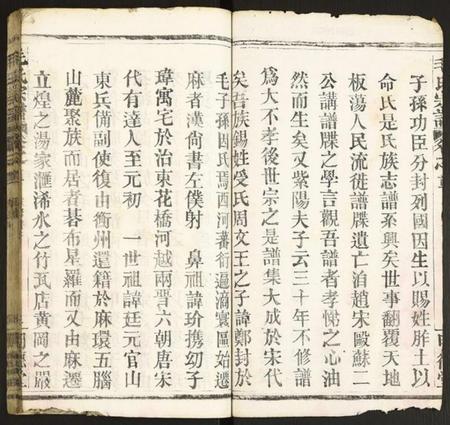 子孫功臣分封列國因生以賜姓胙土以
命氏是氏族志譜系興矣世事翻覆天地
板蕩人民流徙譜牒遺亡洎趙宋歐蘇二
公講譜牒之學言觀吾譜者孝悌之心油
然而生矣又紫陽夫子云三十年不修譜
為大不孝後世宗之是譜集大成於宋代
矣吾族錫姓受氏周文王之子諱鄭封於
毛子孫因氏焉西河蕃衍遍滴寰區始遷
麻者漢尚書左僕射 鼻祖諱玠攜幼子
瑋寓宅於治東花橋河越兩晋六朝唐宋
代有達人至元初 一世祖諱廷元官山
東兵備副使復由衢州還籍於麻環五腦
山麓聚族而居者碁布星羅而又由麻遷
立煌之湯家滙浠水之竹瓦店黃岡之嚴
毛氏宗譜